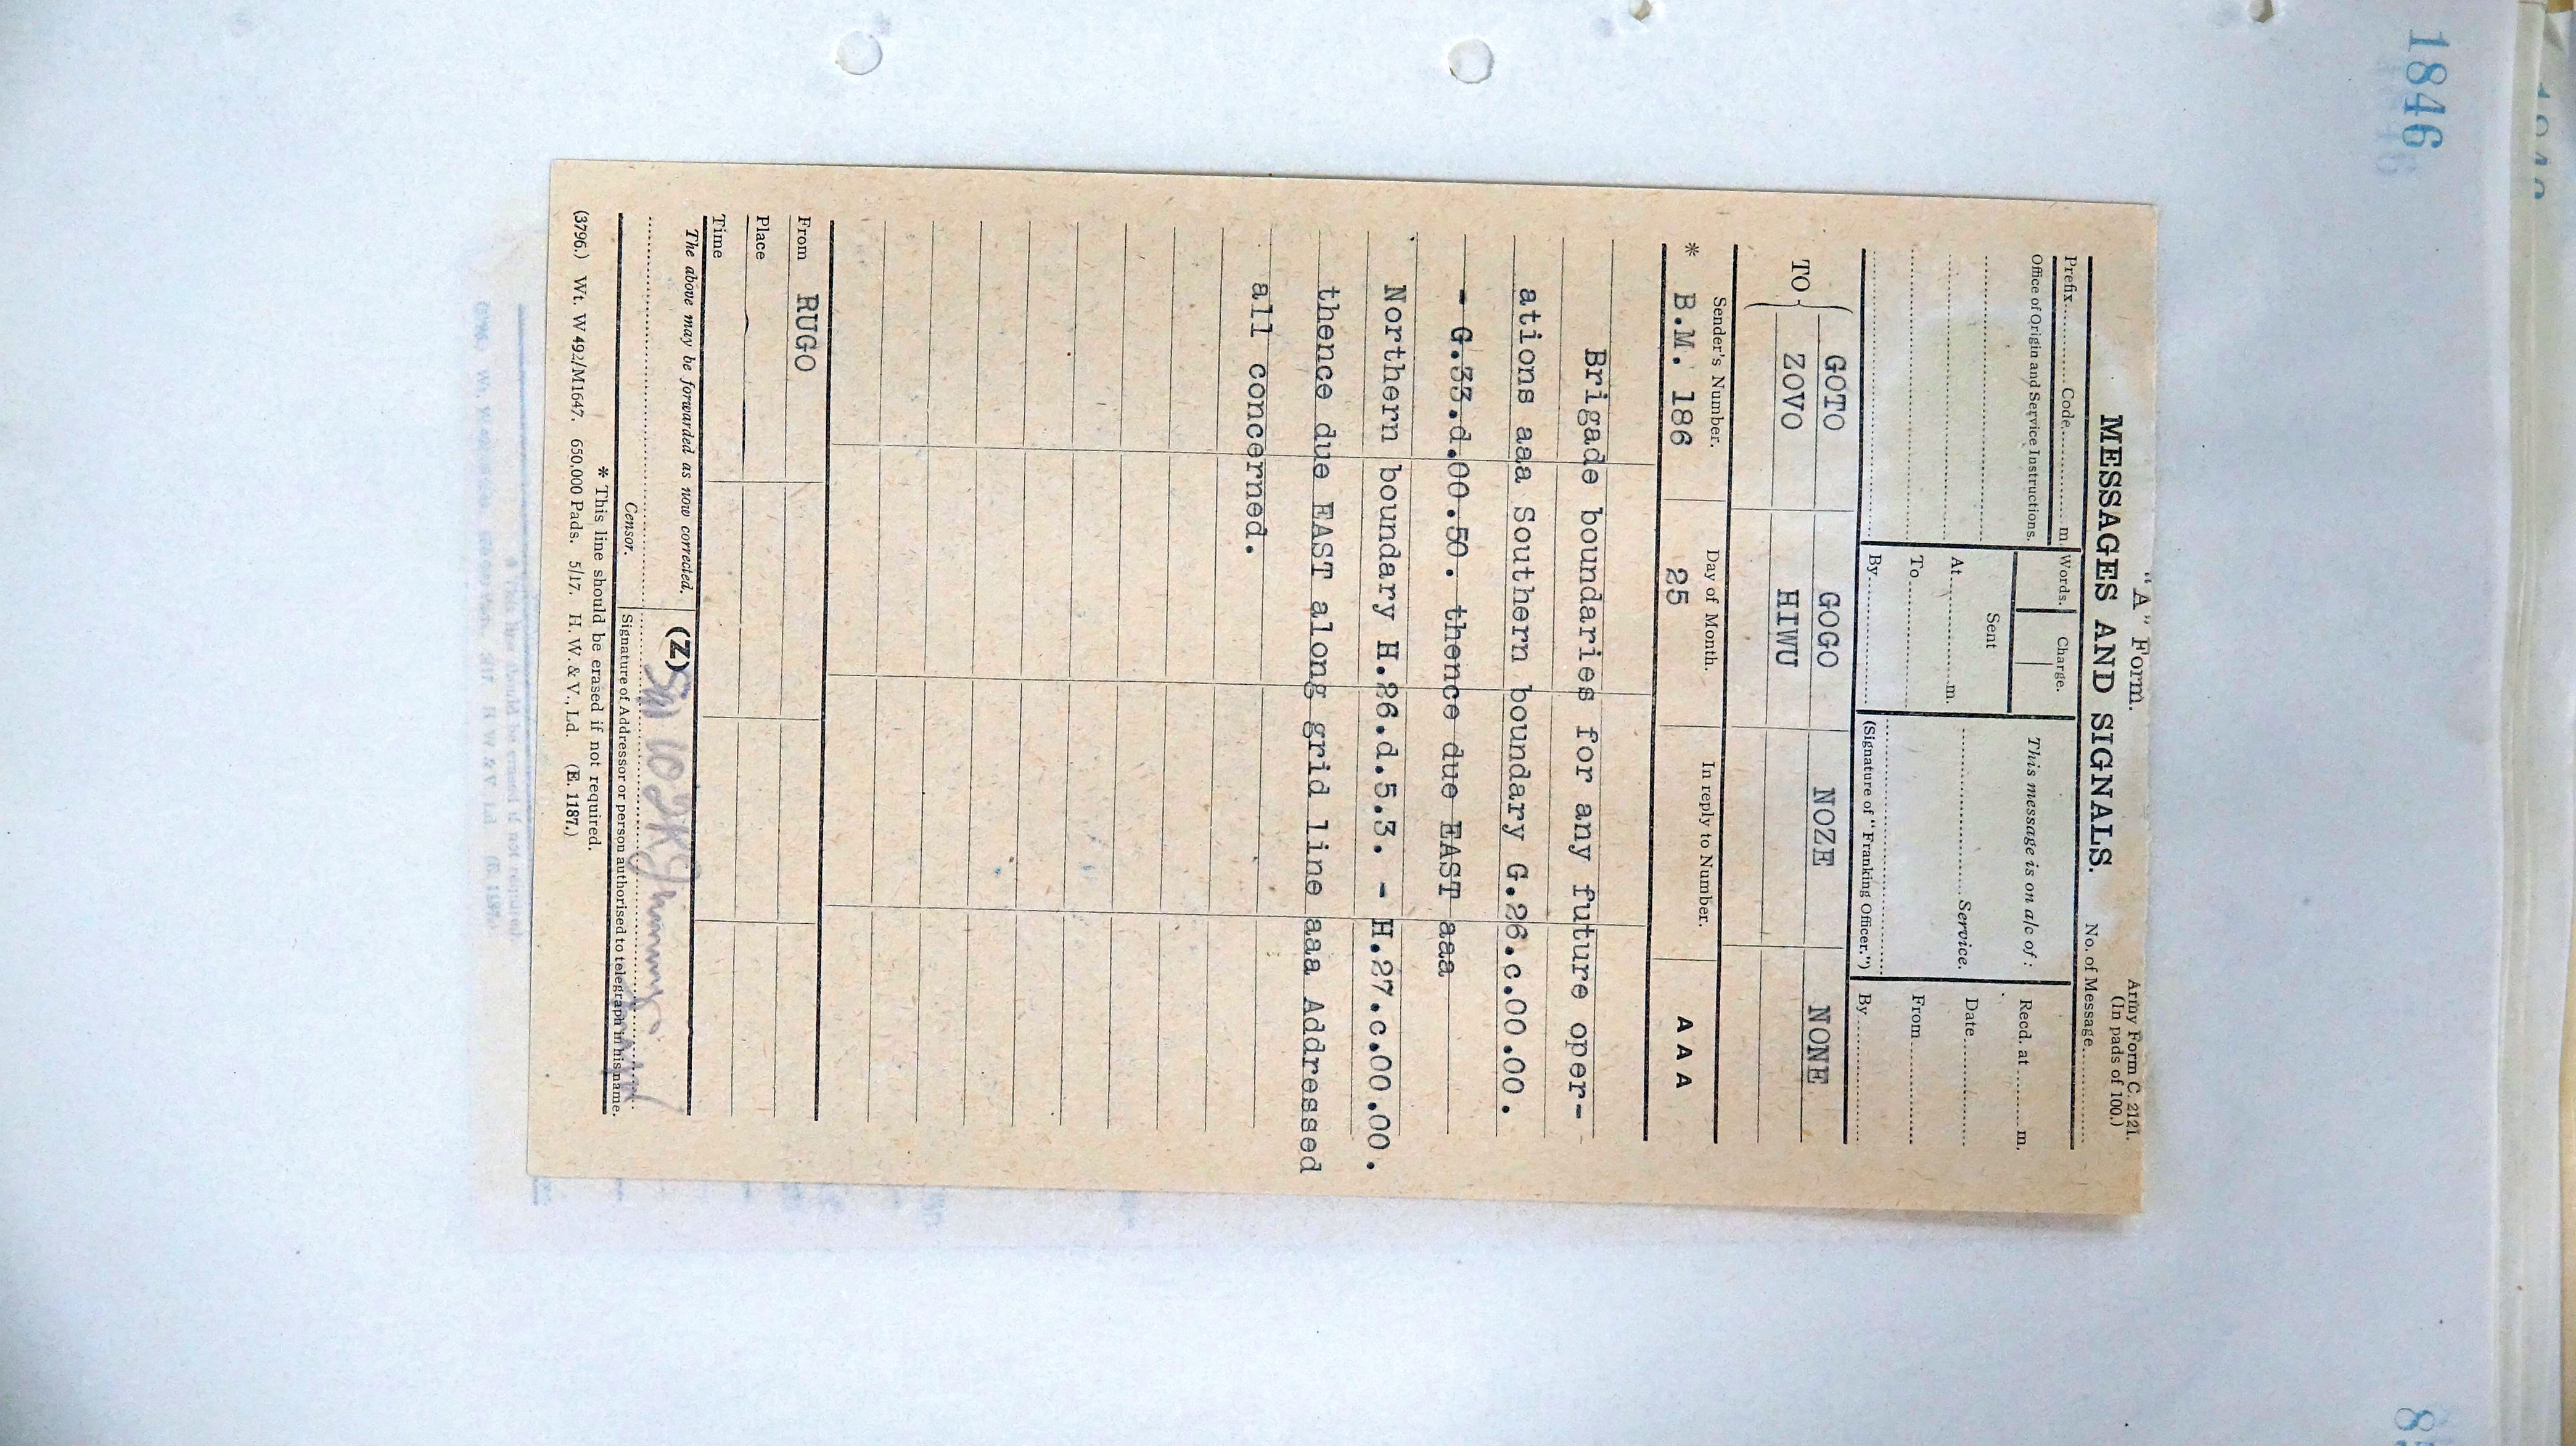 1846
"A" Form.
Army Form C. 2121.
(In pads of 100.)
MESSAGES AND SIGNALS.
No. of Message..........
Prefix.......... Code.......... m.
Words.
Charge.
This message is on a/c of :
Recd. at ........ m.
Office of Origin and Service Instructions.
Sent
Date..........
At.......... m.
.......... Service.
From ..........
To..........
By..........
(Signature of "Franking Officer.")
By..........
TO
GOTO GOGO NOZE NONE
ZOVO HIWU
Sender's Number. Day of Month. In reply to Number.
* B.M. 186 25 A A A
Brigade boundaries for any future oper-
ations aaa Southern boundary G.26.c.00.00.
- G.33.d.00.50. thence due EAST aaa
Northern boundary H.26.d.5.3. - H.27.c.00.00.
thence due EAST along grid line aaa Addressed
all concerned.
From RUGO
Place
Time
The above may be forwarded as now corrected.
(Z)
Censor.
Signature of Addressor or person authorised to telegraph in his name.
* This line should be erased if not required.
(3796.) Wt. W 492/M1647. 650,000 Pads. 5/17. H. W. & V., Ld. (E. 1187.)